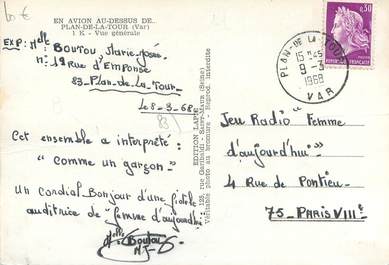 10 €
EN AVION AU-DESSUS DE...
PLAN-DE-LA-TOUR (Var)
1 K. - Vue générale
EXP: Melle BOUTOU Marie-José
n: 19 Rue d'Emponse
83_Plan-de-la-Tour_
Le 8-3-68
Cet ensemble a interprété:
"comme un garçon."
un Cordial Bonjour d'une fidele
auditrice de "femme d'aujourdhui"
Melle Boutou
M-J-
EDITION LAPIE
Véritable photo au bromure - Reprod. interdite
PLAN-DE-LA-TOUR
15 H 45
9-3
1968
VAR
0,30
Jeu Radio "Femme
d'aujourd'hui"
4 Rue de Pontieu
75_PARIS VIIIe